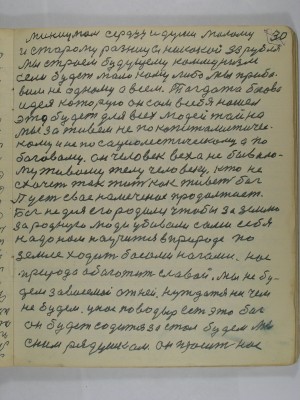 30
минимом сердцу и души малому
и старому разница никакой за рубля
мы строем будущему коммунизм
если будет мало кому либо мы приба-
вим не одному а всем. Тогда та богова
идея которую он сам в себя нашел
это будет для всех людей тайна
мы заживем не по капиталистиче-
кому и не по социолестическому а по
боговому, он человек века не бывало-
му живому телу человеку, кто не
схочет так жить как живет бог
Пусть свае намечение продолжает.
Бог не для его родили чтобы за землю
за родную люди убивали сами себя
надо нам научится в природе по
земле ходить босыми ногами. нас
природа обогатит славой. Мы не бу-
дем завоеваной отней, нуждатя ни чем
не будем. у нас поводыр есть это бог
он будет садится за стол будем мы
с ним рядушком. он просит нас